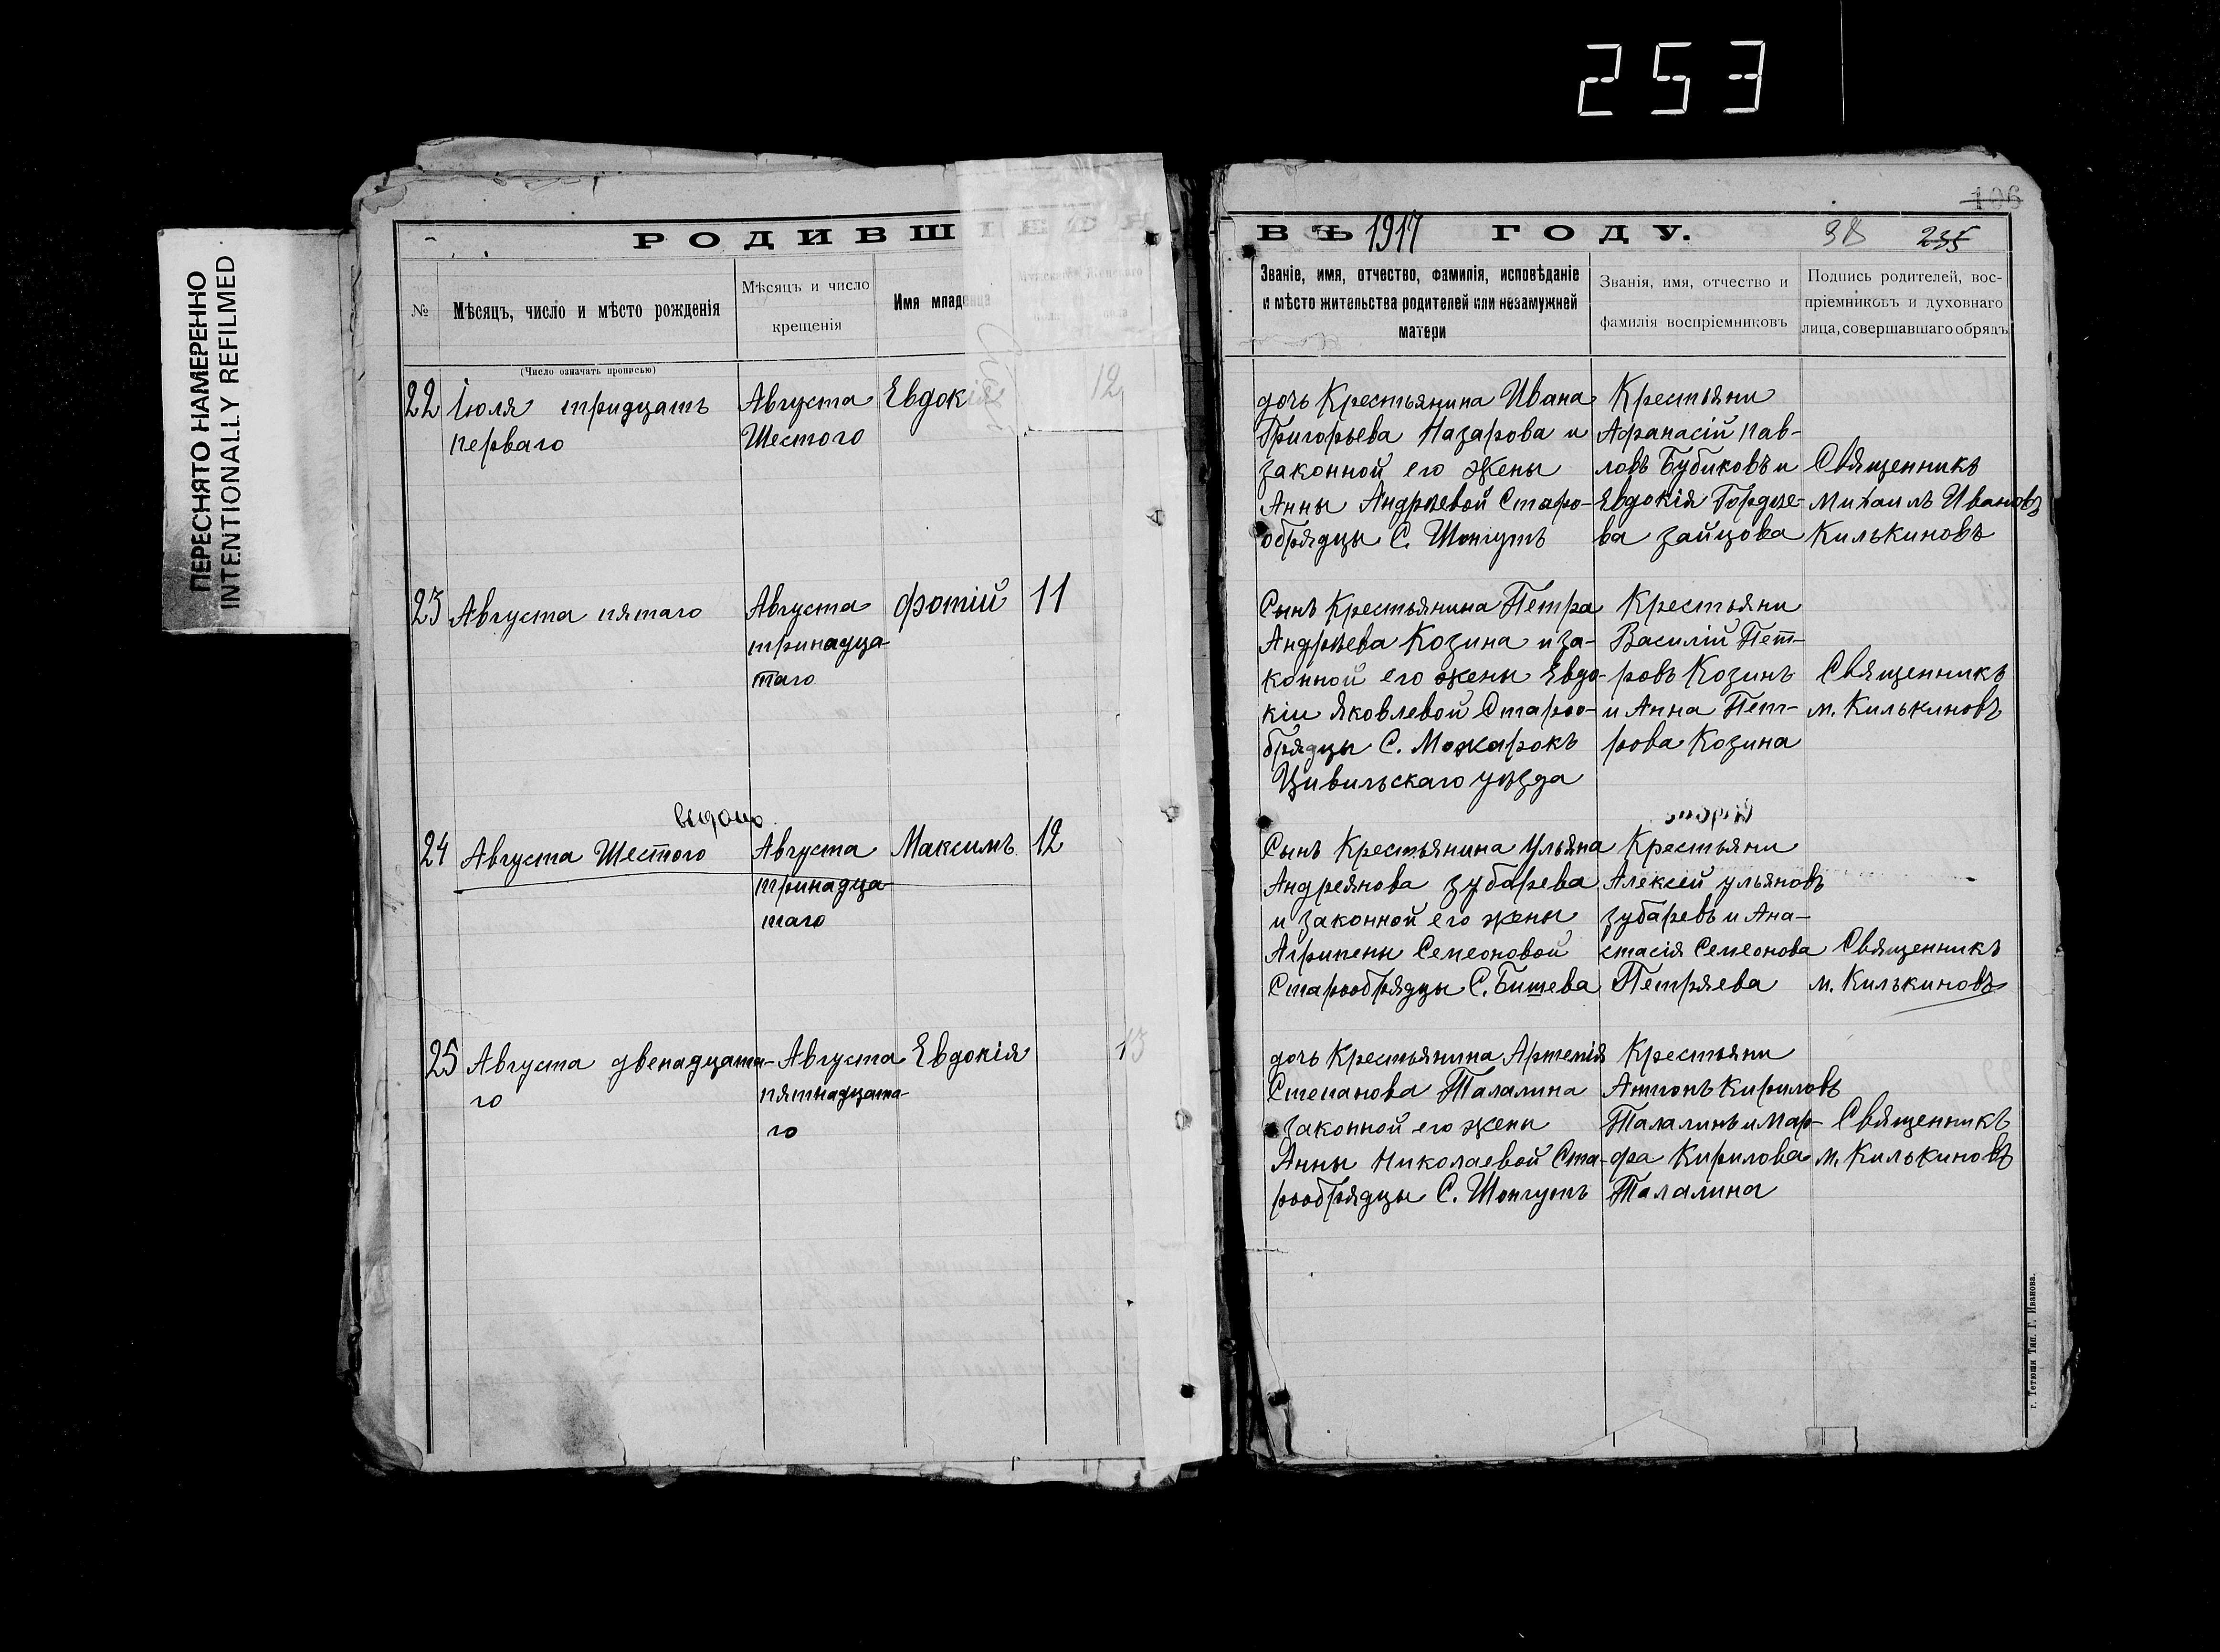 253
ПЕРЕСНЯТО НАМЕРЕННО
INTENTIONALLY REFILMED
106
РОДИВШІЕСЯ
ВЪ 1917 ГОДУ.
38 235
№
Мѣсяцъ, число и мѣсто рожденія
(Число означать прописью)
Мѣсяцъ и число
крещенія
Имя младенца
Званіе, имя, отчество, фамилія, исповѣданіе
и мѣсто жительства родителей или незамужней
матери
Званія, имя, отчество и
фамилія воспріемниковъ
Подпись родителей, вос-
пріемниковъ и духовнаго
лица, совершавшаго обрядъ
22
Іюля тридцать
перваго
Августа
Шестого
Евдокія
12
дочь Крестьянина Ивана
Григорьева Назарова и
законной его жены
Анны Андреевой Старо-
обрядцы С. Шонгутъ
Крестьяни
Афанасій Пав-
ловъ Бубиковъ и
Евдокія Гордѣе-
ва Зайцова
Священникъ
Михаилъ Ивановъ
Килькиновъ
23
Августа пятаго
Августа
тринадца-
таго
Фотій
11
Сынъ Крестьянина Петра
Андрѣева Козина и за-
конной его жены Евдо-
кіи Яковлевой Староо-
брядцы С. Можарокъ
Цивильскаго уѣзда
Крестьяни
Василій Пет-
ровъ Козинъ
и Анна Пет-
рова Козина
Священникъ
М. Килькиновъ
выдано
24
Августа Шестого
Августа
тринадца-
таго
Максимъ
12
Сынъ Крестьянина Ульяна
Андреянова Зубарева
и законной его жены
Агрипены Семеоновой
Старообрядцы С. Бишева
Крестьяни
Алексей Ульяновъ
Зубаревъ и Ана-
стасія Семеонова
Петряева
Священникъ
М. Килькиновъ
25
Августа двенадцата-
го
Августа
пятнадцата-
го
Евдокія
13
дочь Крестьянина Артемія
Степанова Талалина
законной его жены
Анны Николаевой Ста-
рообрядцы С. Шонгутъ
Крестьяни
Антонъ Кириловъ
Талалинъ и Мар-
фа Кирилова
Талалина
Священникъ
М. Килькиновъ
г. Тетюши Тип. Г. Иванова.